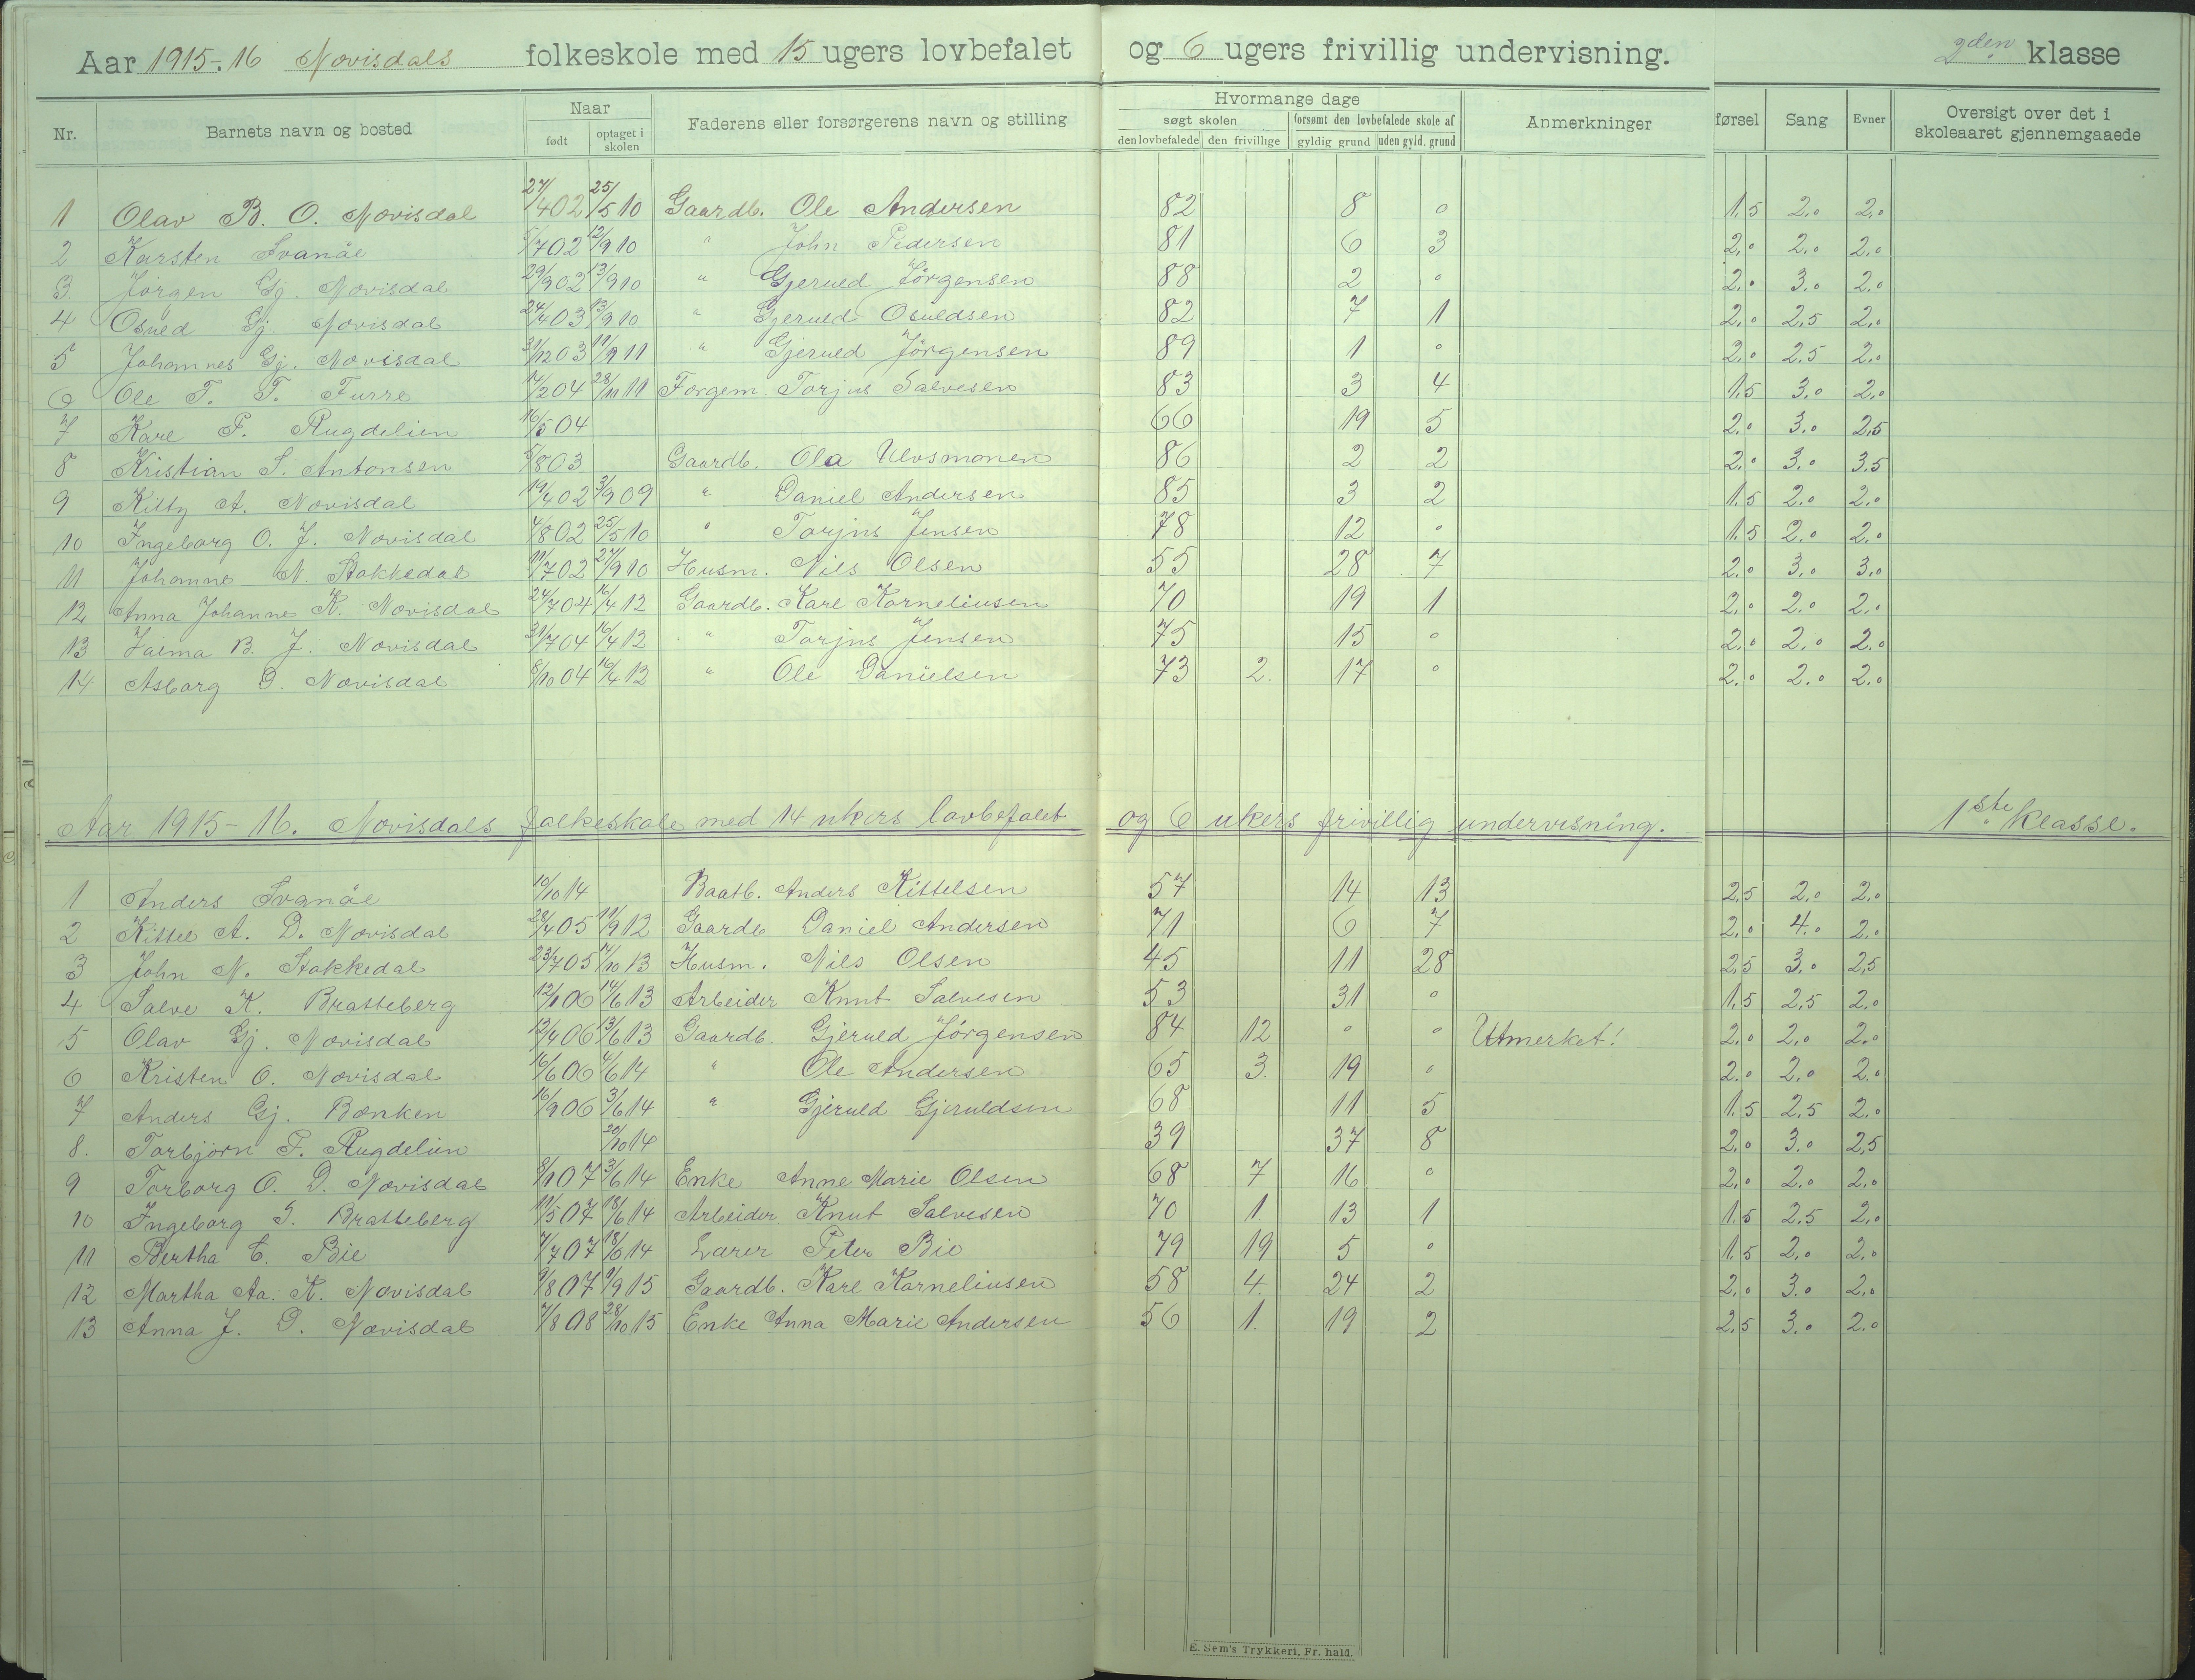 Aar 1915-16 Novisdals folkeskole med 15 ugers lovbefalet og 6 ugers frivillig undervisning. 2den klasse
Nr. Barnets navn og bosted Naar født optaget i skolen Faderens eller forsørgerens navn og stilling Hvormange dage søgt skolen den lovbefalede den frivillige forsømt den lovbefalede skole af gyldig grund uden gyld. grund Anmerkninger førsel Sang Evner Oversigt over det i skoleaaret gjennemgaaede
1 Olav B. O. Novisdal 27/4 02 25/5 10 Gaardb. Ole Andersen 82 8 0 1,5 2,0 2,0
2 Karsten Svanöe 5/7 02 12/9 10 " John Pedersen 81 6 3 2,0 2,0 2,0
3 Jörgen Gj. Novisdal 29/9 02 13/9 10 " Gjeruld Jörgensen 88 2 0 2,0 3,0 2,0
4 Osuld Gj. Novisdal 24/4 03 13/9 10 " Gjeruld Osuldsen 82 7 1 2,0 2,5 2,0
5 Johannes Gj. Novisdal 31/12 03 11/9 11 " Gjeruld Jörgensen 89 1 0 2,0 2,5 2,0
6 Ole T. T. Furre 14/2 04 28/11 11 Forgem. Torjus Salvesen 83 3 4 1,5 3,0 2,0
7 Kare F. Rugdelien 16/5 04 66 19 5 2,0 3,0 2,5
8 Kristian S. Antonsen 5/8 03 Gaardb. Ola Ulvsmonen 86 2 2 2,0 3,0 3,5
9 Kitty A. Novisdal 19/4 02 3/9 09 " Daniel Andersen 85 3 2 1,5 2,0 2,0
10 Ingeborg O. J. Novisdal 4/8 02 25/5 10 " Torjus Jensen 78 12 0 1,5 2,0 2,0
11 Johanne N. Stokkedal 11/7 02 27/9 10 Husm. Nils Olsen 55 28 7 2,0 3,0 3,0
12 Anna Johanne K. Novisdal 24/7 04 16/4 12 Gaardb. Karl Korneliusen 70 19 1 2,0 2,0 2,0
13 Jalma B. J. Novisdal 31/7 04 16/4 12 " Torjus Jensen 75 15 0 2,0 2,0 2,0
14 Asborg D. Novisdal 8/10 04 16/4 12 " Ole Danielsen 73 2. 17 0 2,0 2,0 2,0
Aar 1915-16. Novisdals folkeskole med 14 ukers lovbefalet og 6 ukers frivillig undervisning. 1ste klasse.
1 Anders Svanöe 10/10 14 Baatb. Anders Kittelsen 57 14 13 2,5 2,0 2,0
2 Kittel A. D. Novisdal 28/4 05 11/9 12 Gaardb Daniel Andersen 71 6 7 2,0 4,0 2,0
3 John N. Stokkedal 23/7 05 14/10 13 Husm. Nils Olsen 45 11 28 2,5 3,0 2,5
4 Salve K. Bratteberg 12/1 06 14/6 13 Arbeider Knut Salvesen 53 31 0 1,5 2,5 2,0
5 Olav Gj. Novisdal 12/4 06 13/6 13 Gaardb. Gjeruld Jörgensen 84 12 0 0 Utmerket! 2,0 2,0 2,0
6 Kristen O. Novisdal 16/6 06 4/6 14 " Ole Andersen 65 3. 19 0 2,0 2,0 2,0
7 Anders Gj. Bonken 16/9 06 3/6 14 " Gjeruld Gjeruldsen 68 11 5 1,5 2,5 2,0
8. Torbjörn F. Rugdelien 20/10 14 39 37 8 2,0 3,0 2,5
9 Torborg O. D. Novisdal 8/1 07 3/6 14 Enke Anne Marie Olsen 68 7 16 0 2,0 2,0 2,0
10 Ingeborg S. Bratteberg 11/5 07 18/6 14 Arbeider Knut Salvesen 70 1. 13 1 1,5 2,5 2,0
11 Bertha E. Bie 7/7 07 18/6 14 Lærer Peter Bie 79 19 5 0 1,5 2,0 2,0
12 Martha Aa. K. Novisdal 9/8 07 9/9 15 Gaardb. Karl Korneliusen 58 4. 24 2 2,0 3,0 2,0
13 Anna J. D. Novisdal 7/8 08 28/10 15 Enke Anna Marie Andersen 56 1. 19 2 2,5 3,0 2,0
E. Sem's Trykkeri, Fr. hald.